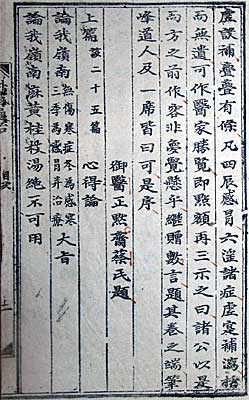 虛設補疊疊有條凡四辰感冒六淫諸症虛寔補瀉指
而無遺可作醫家勝覽即照顧再三示之曰諸公以是
而方之前作容非要覺懸乎繼贈數言題其卷之端筆
峰道人及一席皆曰可是序
御醫正照齋蔡氏題
上篇 該二十五篇 心得論
論我嶺南 無傷寒症冬為感寒三季為感冒并治療 大旨
論我嶺南麻黃桂枝湯絶不可用